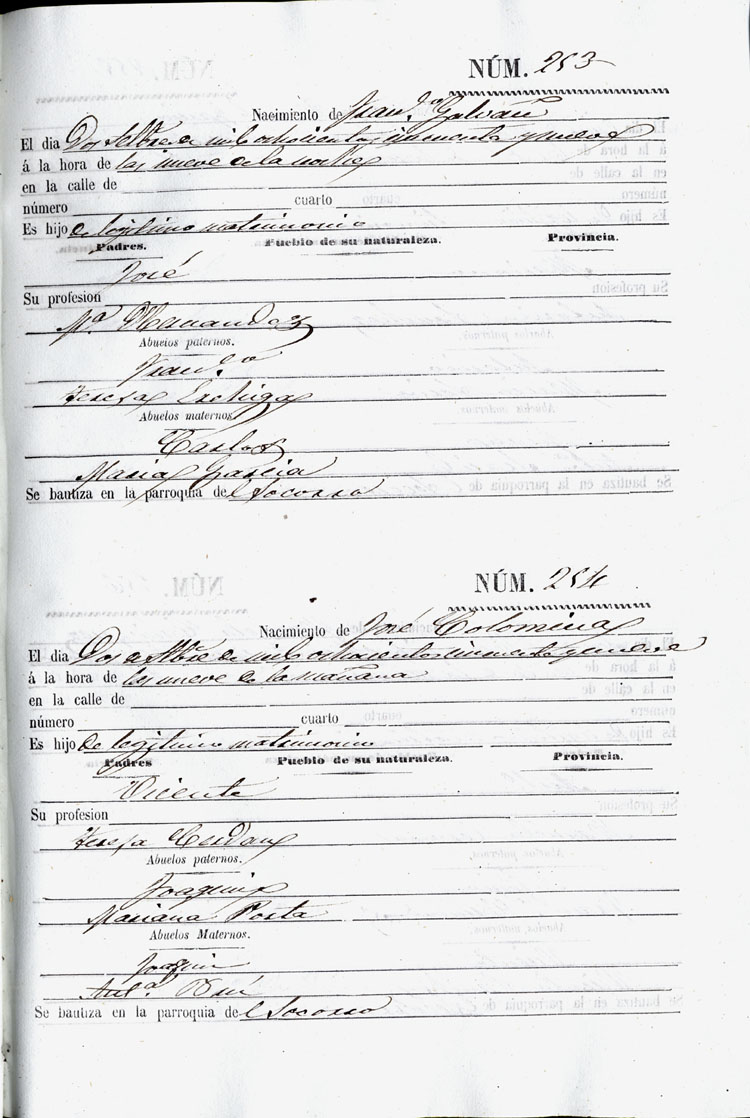 NÚM. 253
Nacimiento de Fran.ᶜᵒ Galván
El dia Dos Setbre de mil ochocientos cincuenta y nueve
á la hora de las nueve de la noche
en la calle de
número cuarto
Es hijo de legítimo matrimonio
Padres. Pueblo de su naturaleza. Provincia.
José
Su profesion
Mª Hernandez
Abuelos paternos.
Fran.ᶜᵒ
Teresa
Abuelos maternos.
Carlos
Maria Garcia
Se bautiza en la parroquia del Socorro
NÚM. 254
Nacimiento de José Colomina
El dia Dos Setbre de mil ochocientos cincuenta y nueve
á la hora de las nueve de la mañana
en la calle de
número cuarto
Es hijo de legitimo matrimonio
Padres Pueblo de su naturaleza. Provincia.
Vicente
Su profesion
Teresa Cerdan
Abuelos paternos.
Joaquin
Mariana Porta
Abuelos Maternos.
Joaquin
Ant.ª
Se bautiza en la parroquia del Socorro